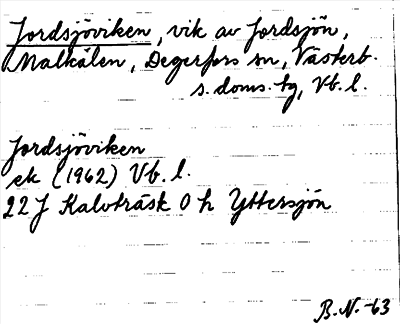 Jordsjöviken, vik av Jordsjön,
Malkålen, Degerfors sn, Västerb.
s. doms. tg, Vb. l.
Jordsjöviken
ek (1962) Vb. l.
22 J Kalvträsk O h Yttersjön
B.N. -63